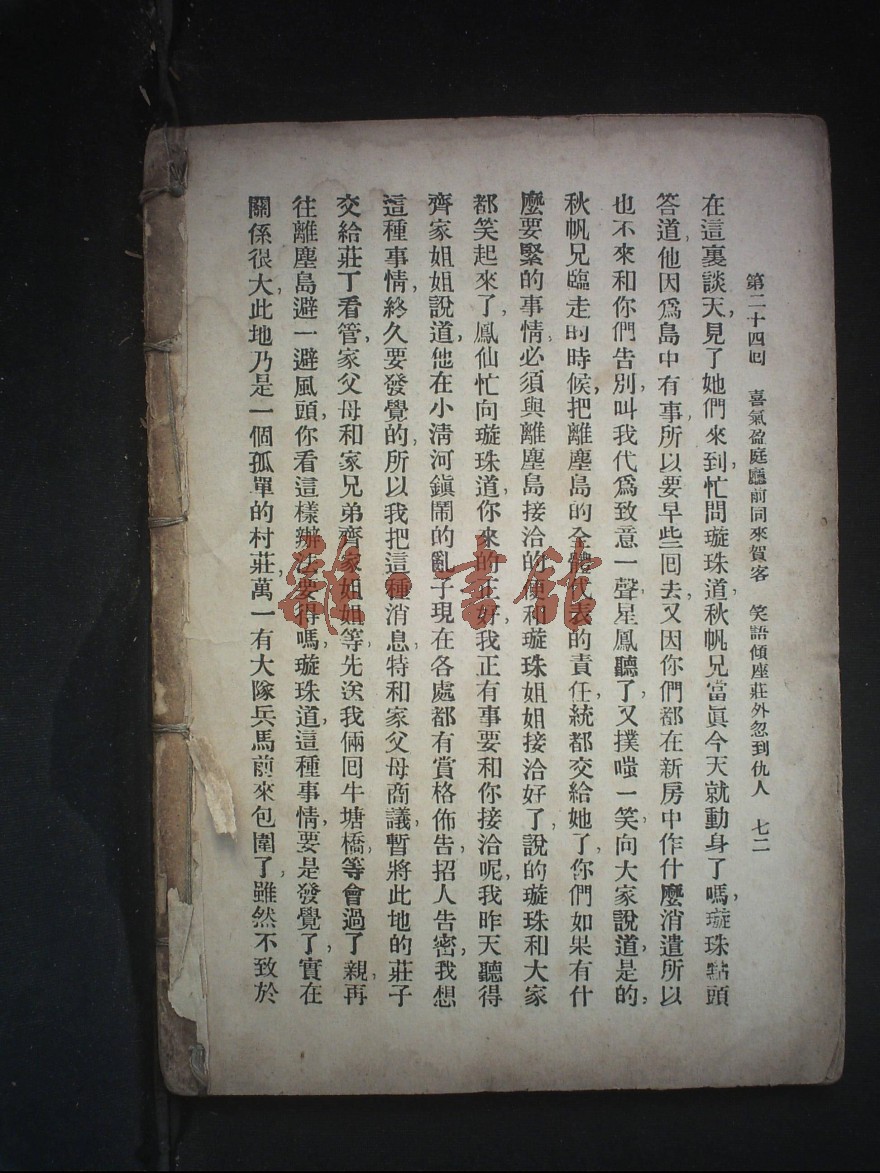 第二十四回　喜氣盈庭廳前同來賀客　笑語傾座莊外忽到仇人　七二
在這裏談天，見了她們來到，忙問璇珠道，秋帆兄當眞今天就動身了嗎，璇珠點頭
答道，他因爲島中有事，所以要早些囘去，又因你們都在新房中作什麼消遣，所以
也不來和你們告別，叫我代爲致意一聲，星鳳聽了，又撲嗤一笑，向大家說道，是的，
秋帆兄臨走的時候，把離塵島的全體代表的責任，統都交給她了，你們如果有什
麼要緊的事情，必須與離塵島接洽的，便和璇珠姐姐接洽好了，說的璇珠和大家
都笑起來了，鳳仙忙向璇珠道，你來的正好，我正有事要和你接洽呢，我昨天聽得
齊家姐姐說道，他在小淸河鎭鬧的亂子，現在各處都有賞格佈告，招人告密，我想
這種事情，終久要發覺的，所以我把這種消息，特和家父母商議，暫將此地的莊子
交給莊丁看管，家父母和家兄弟齊家姐姐等，先送我倆囘牛塘橋，等會過了親，再
往離塵島避一避風頭，你看這樣辦法要得嗎，璇珠道，這種事情，要是發覺了，實在
關係很大，此地乃是一個孤單的村莊，萬一有大隊兵馬前來包圍了，雖然不致於
雜·書館